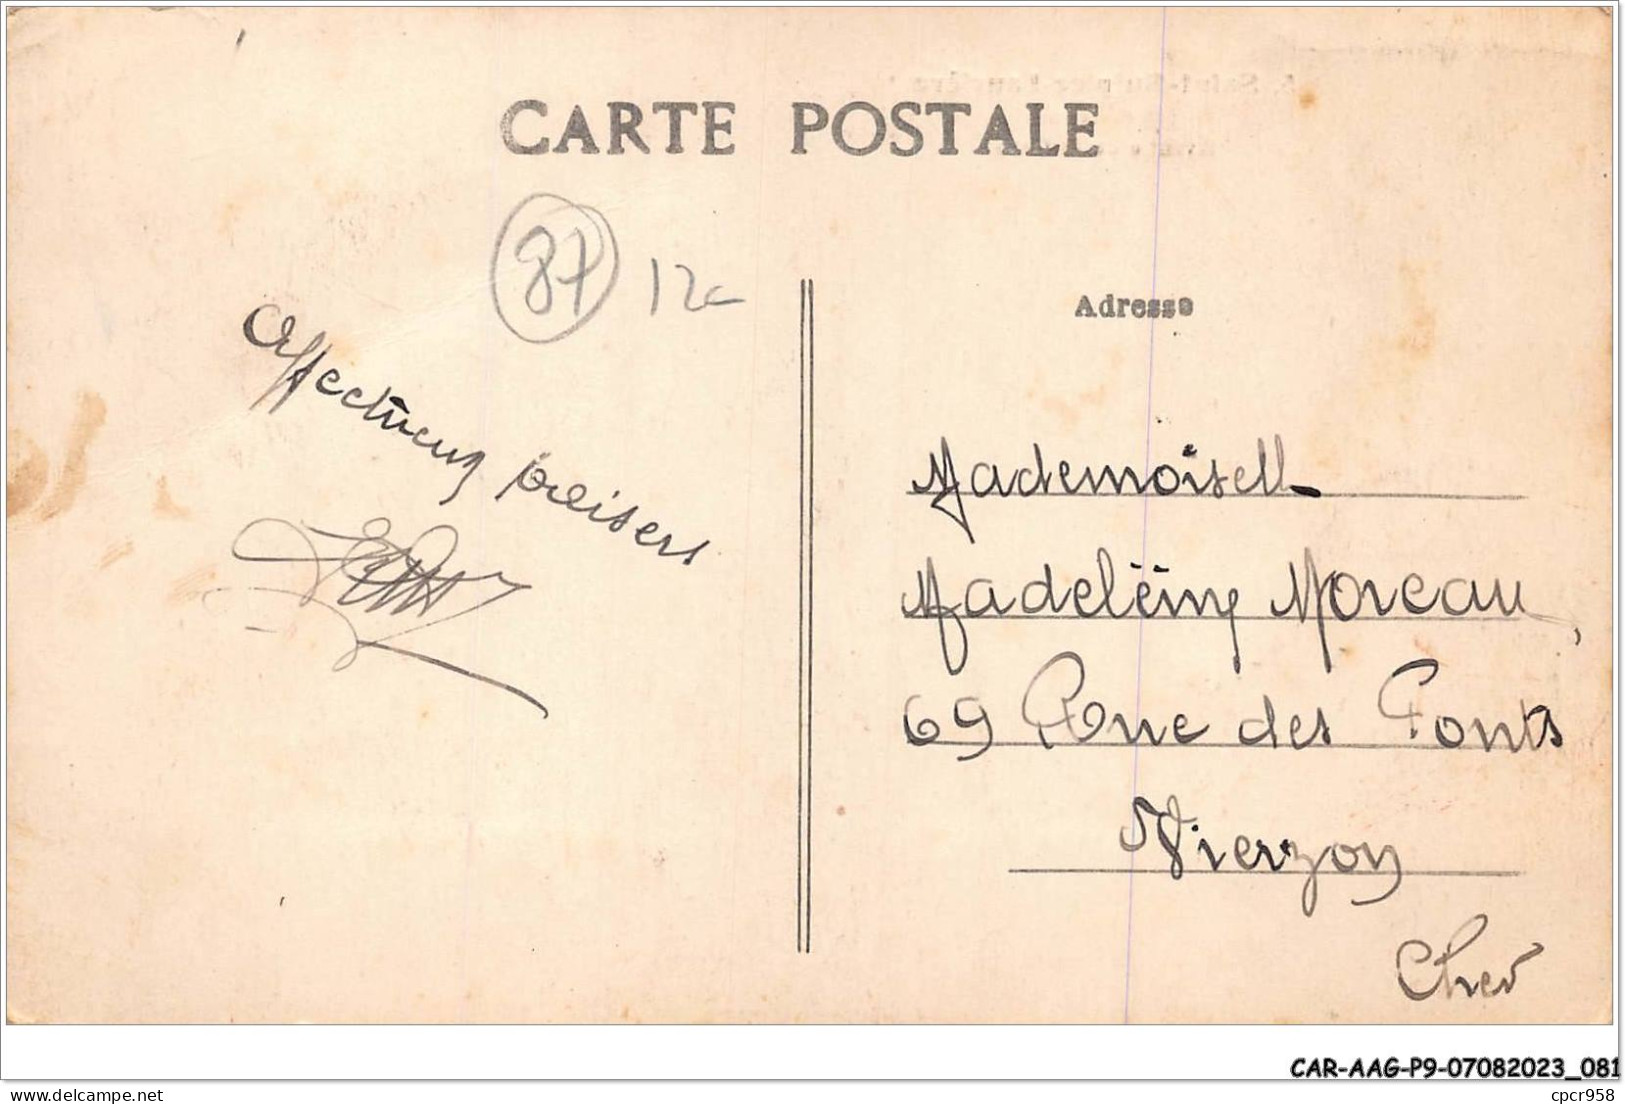 CARTE POSTALE
87 12
Adresse
Affectueux baisers
Mademoiselle
Madeleine Moreau
69 Rue des Ponts
Vierzon
Cher
CAR-AAG-P9-07082023_081
delcampe.net
cpcr958